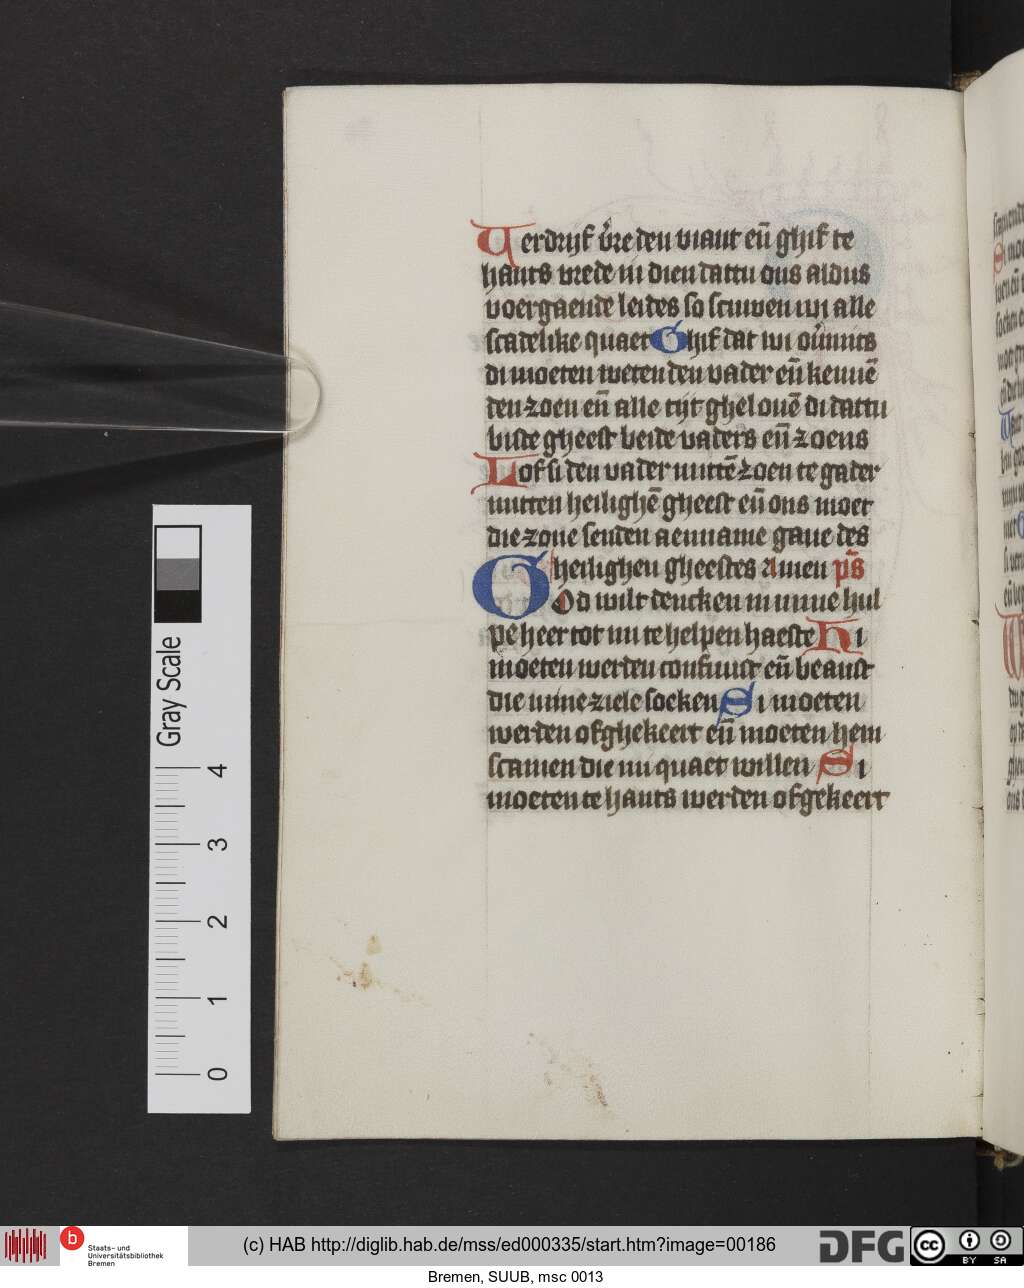 Verdrijf v̊re den viant eñ ghif te
hants vrede in dien dattu ons aldus
voergaende leides so scuwen wi alle
scadelike quaet Ghif dat wi ov̊mits
di moeten weten den vader eñ kennē
den zoen eñ alle tijt ghelouē di dattu
biste gheest beide vaders eñ zoens
Lof si den vader mittē zoen te gader
mitten heilighē gheest eñ ons moet
die zone senden aenname gaue des
heilighen gheestes Amen p̄s
God wilt dencken in mine hul
pe heer tot mi te helpen haeste Hi
moeten werden confuust eñ beaust
die mine ziele soeken Si moeten
werden ofghekeert eñ moeten hem
scamen die mi quaet willen Si
moeten te hants werden ofgekeert
Gray Scale
4
3
2
1
0
b
Staats- und
Universitätsbibliothek
Bremen
(c) HAB http://diglib.hab.de/mss/ed000335/start.htm?image=00186
DFG
cc
BY SA
Bremen, SUUB, msc 0013